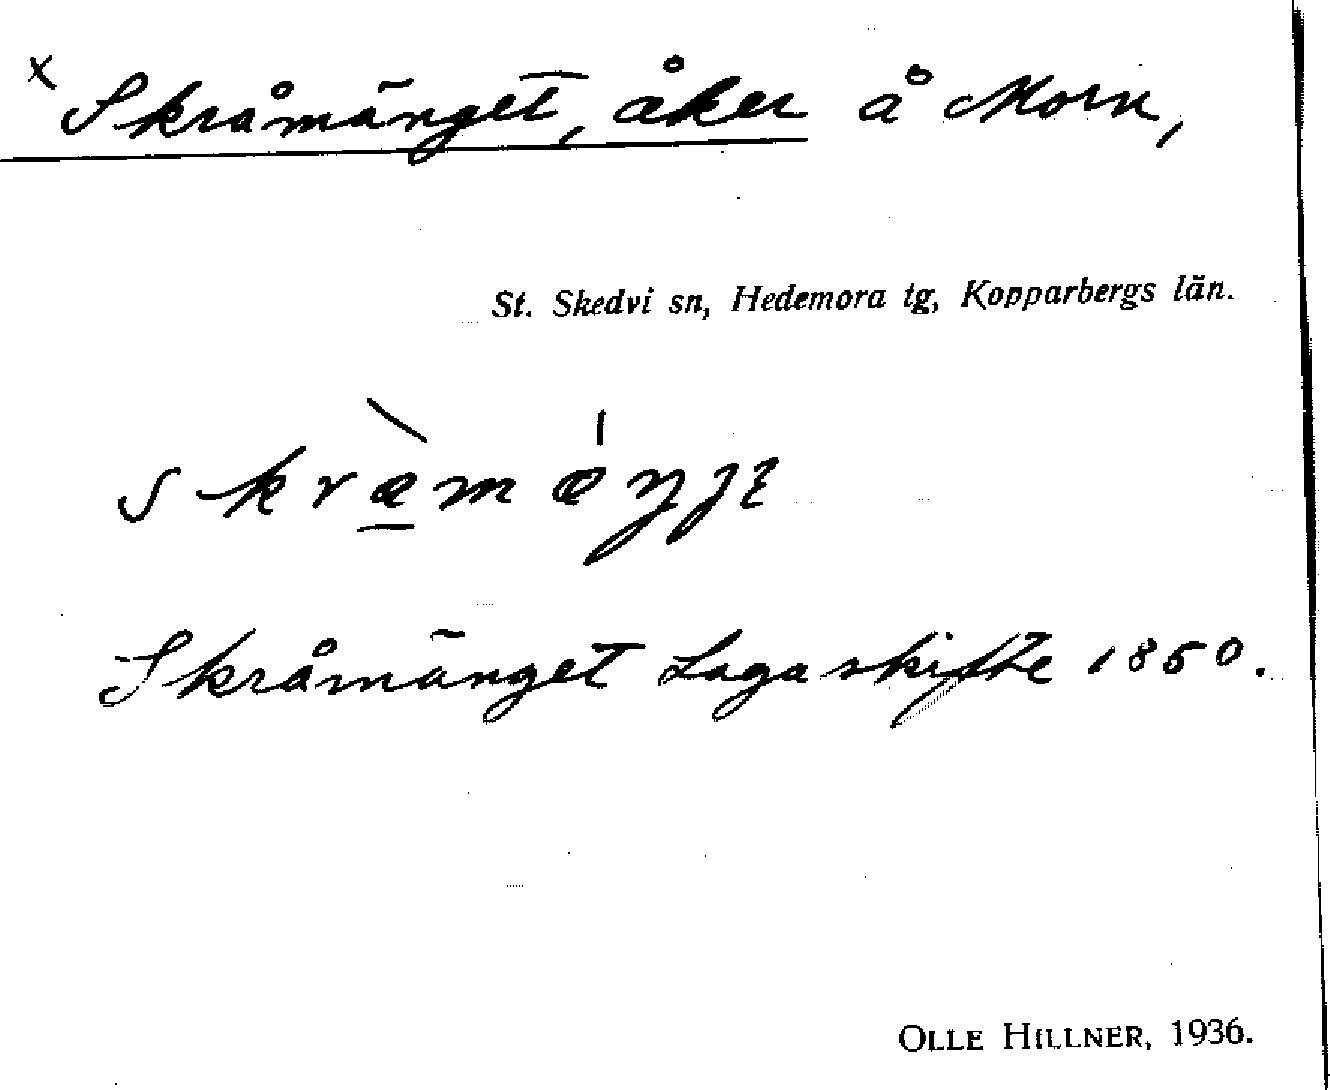 x Skråmänget, åker å Morn,
St. Skedvi sn, Hedemora tg, Kopparbergs län.
Skråmänget Lagaskifte 1850.
OLLE HILLNER, 1936.